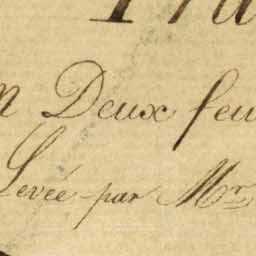 n Deux feu
Levée par Mr